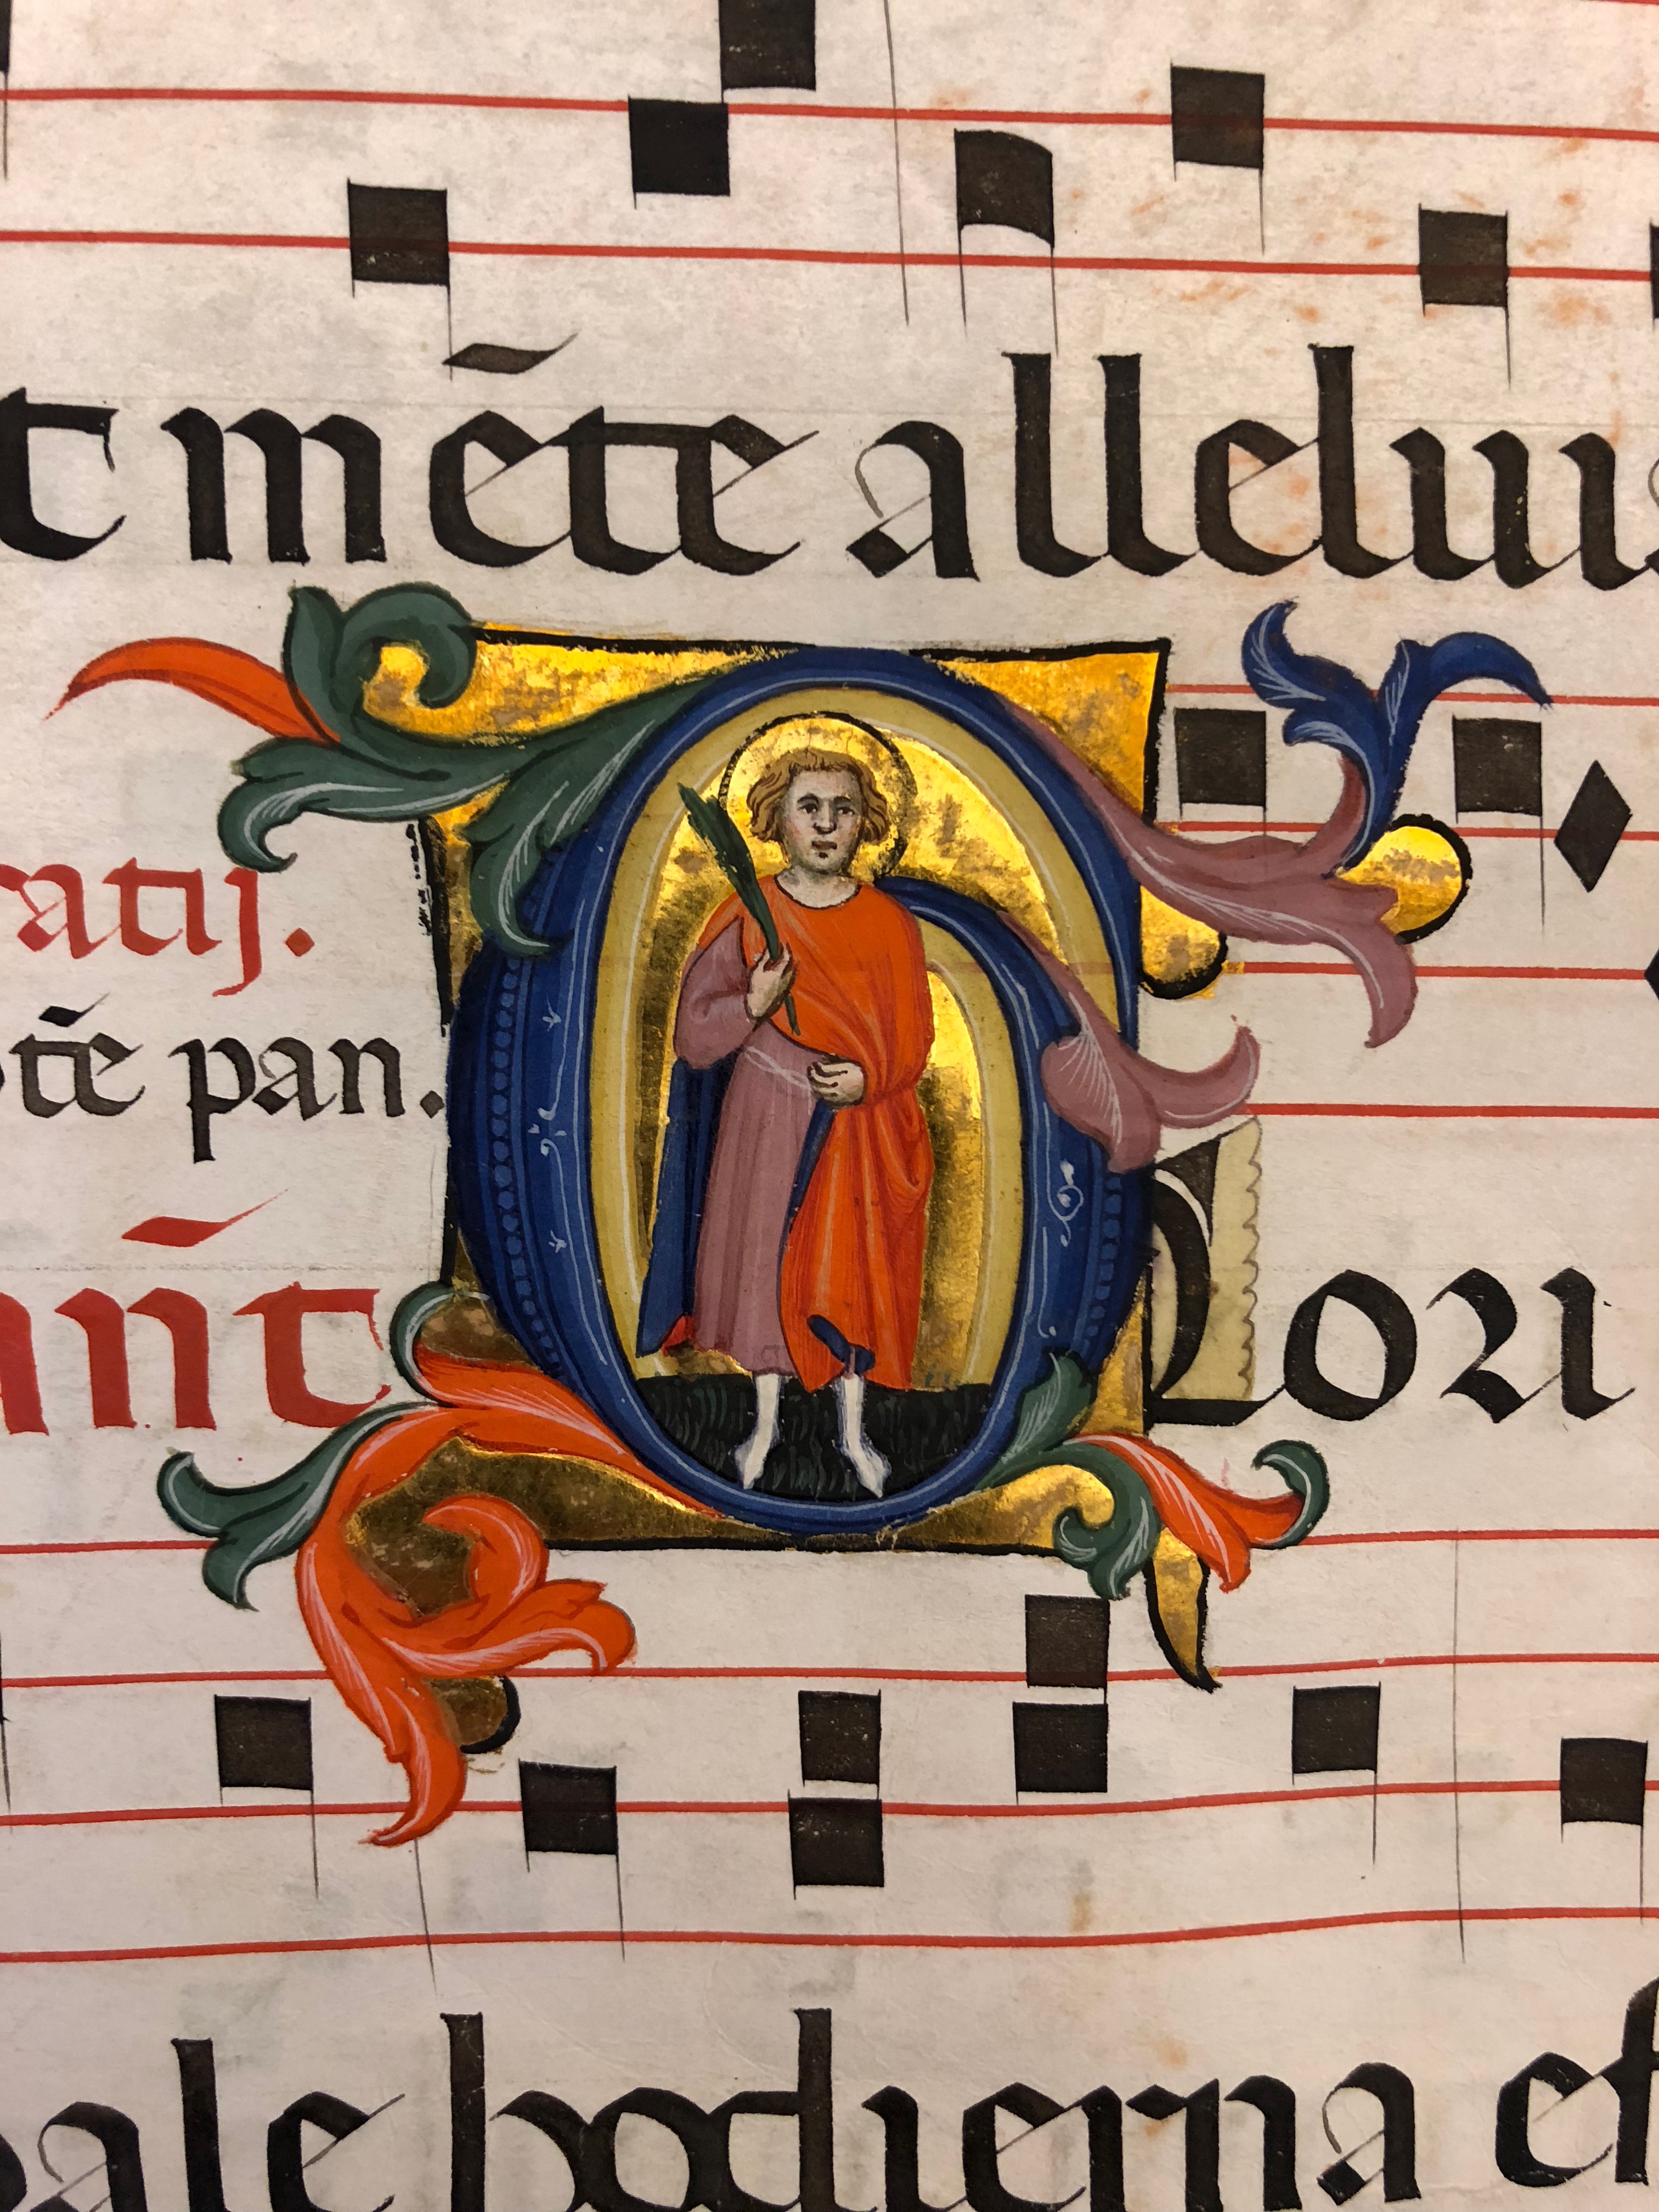 t mēte allelui
ratij.
otē pan.
an̄t Glori
ale hodierna es